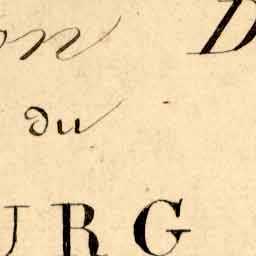 on D
du
URG